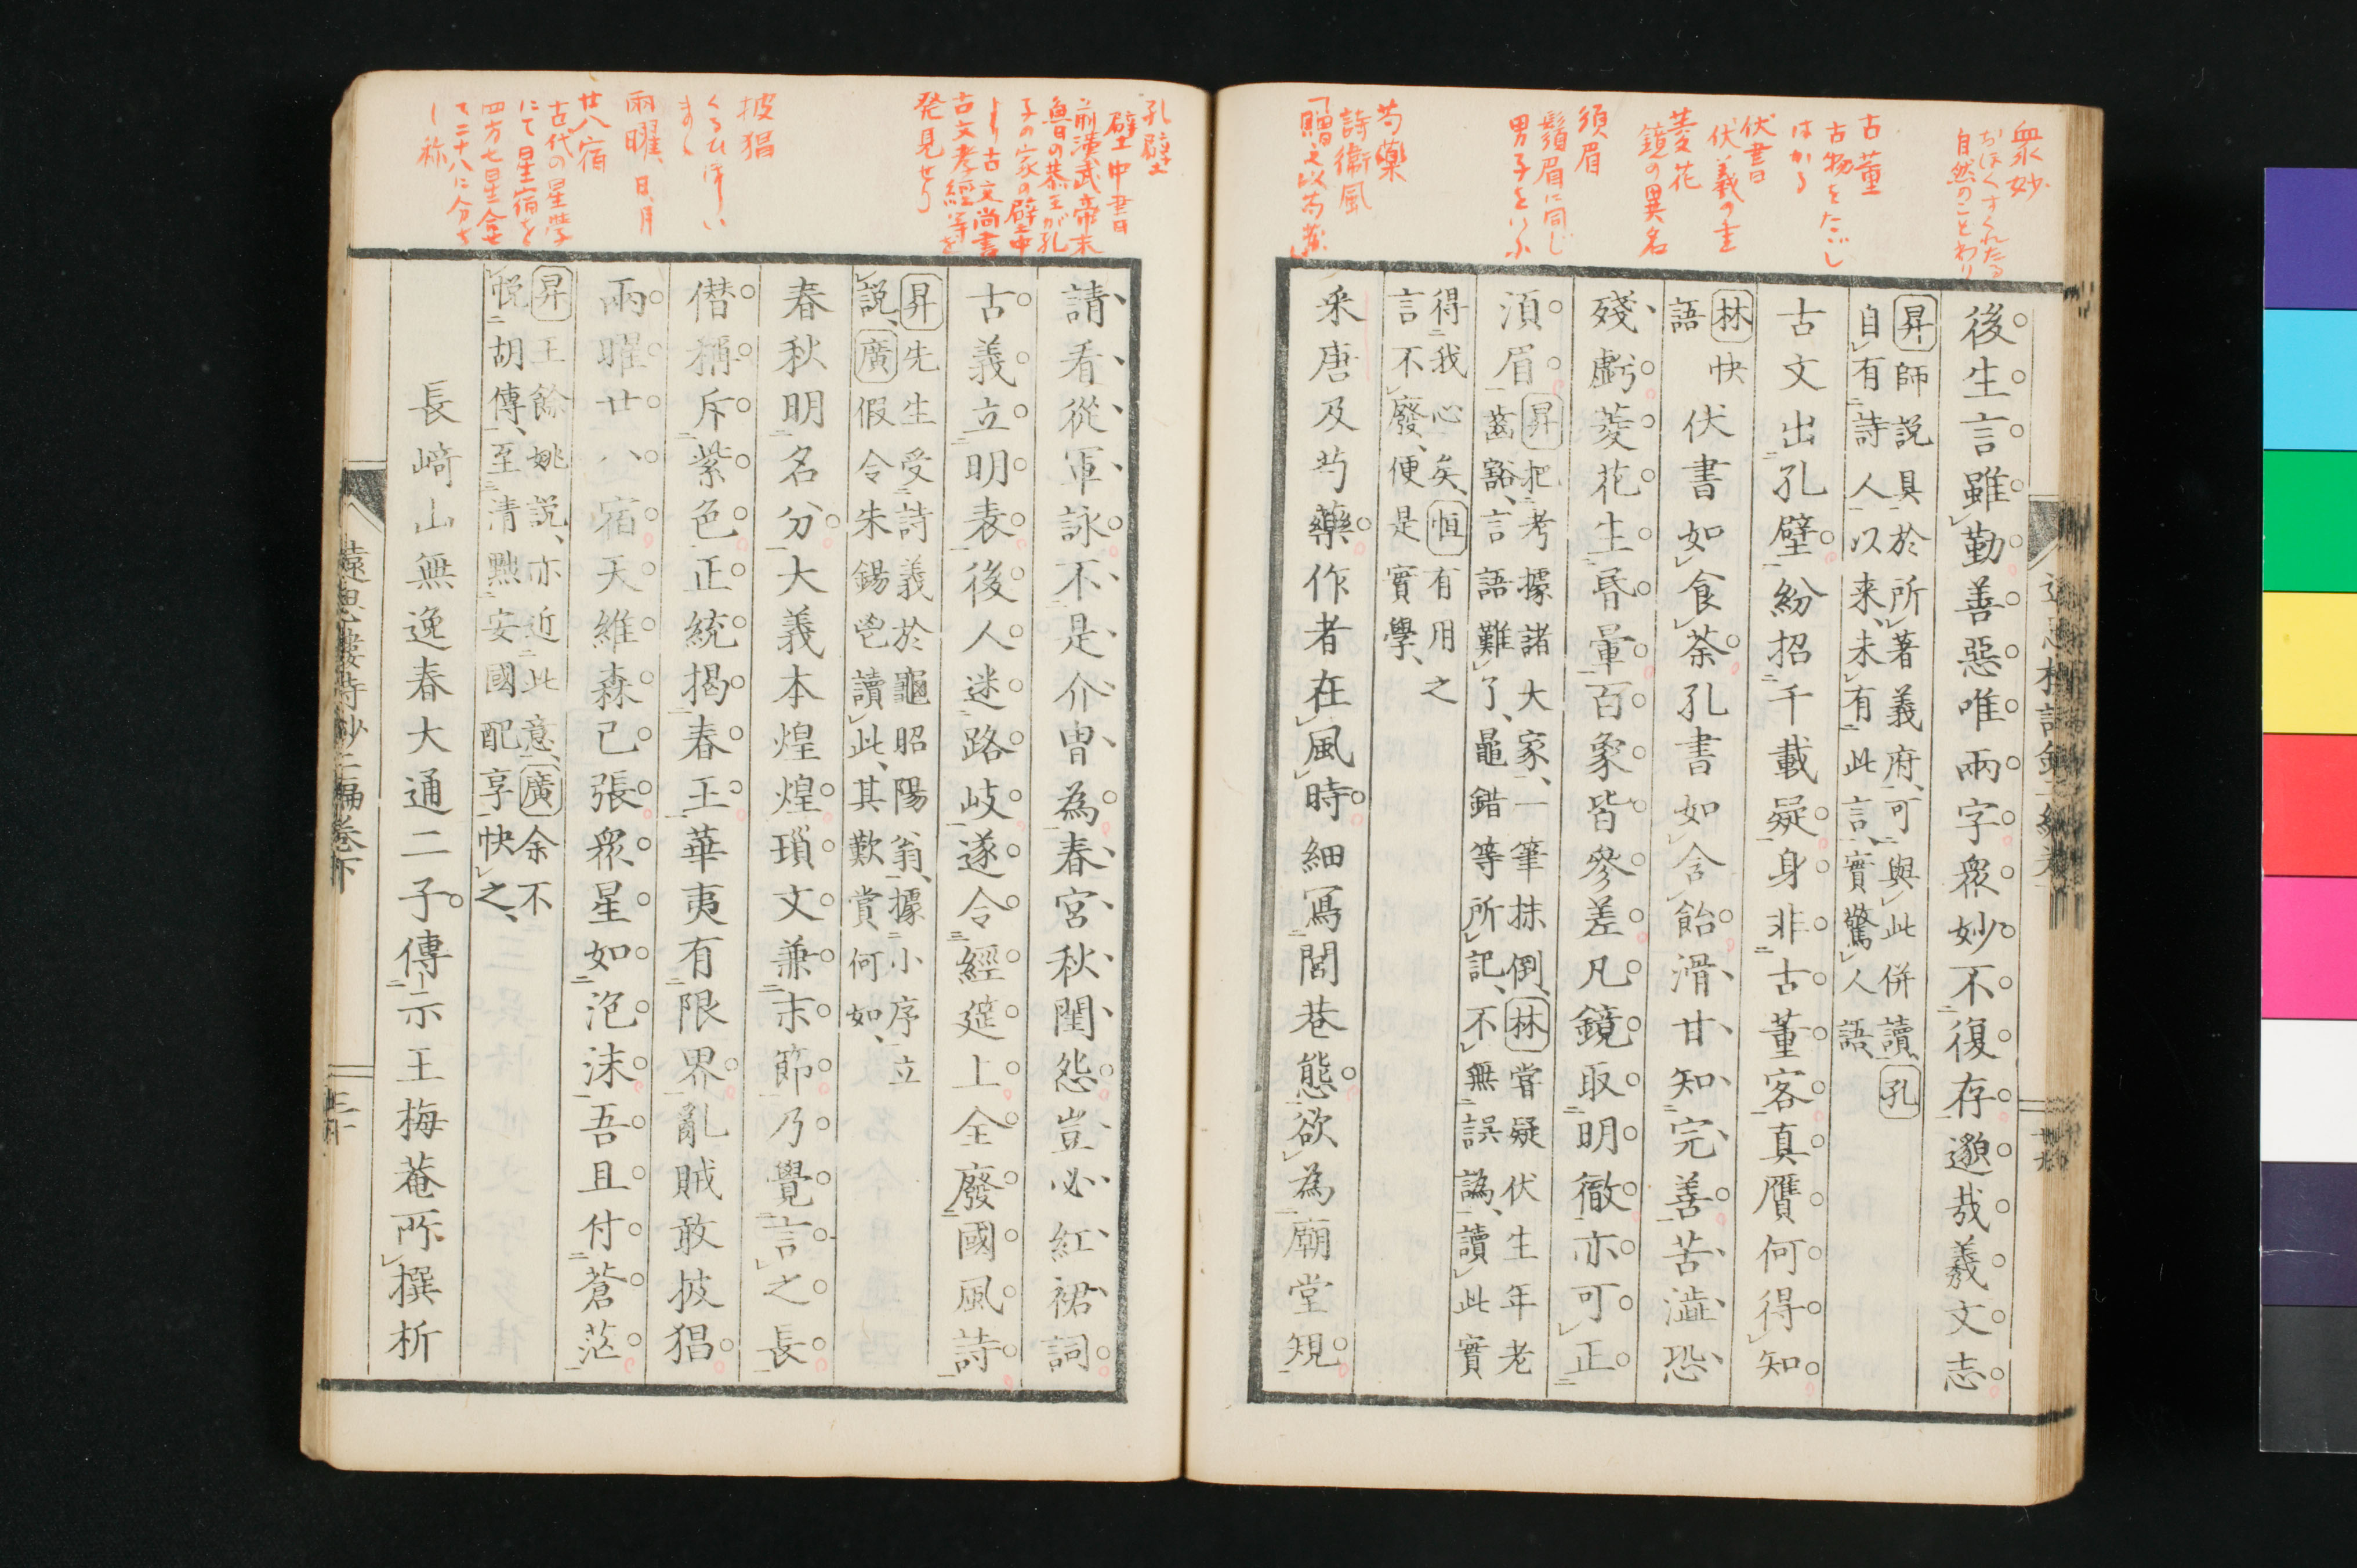 衆妙
おほくすくれたる
自然のことわり
古董
古物をたゞし
はかる
伏書
伏義の書
菱花
鏡の異名
須眉
鬚眉に同じ
男子をいふ
芍藥
詩衞風
「贈之以芍藥」
後生言雖勤善惡唯兩字衆妙不復存邈哉羲文志
昇師説具於所著義府可與此併讀孔
自有詩人以来未有此言實驚人語
古文出孔壁紛招千載疑身非古董客真贋何得知
林快
語
伏書如食荼孔書如含飴滑甘知完善苦澁恐
殘虧菱花生昏暈百象皆參差凡鏡取明徹亦可正
須眉
昇把考據諸大家一筆抹倒林嘗疑伏生年老
齒豁言語難了鼂錯等所記不無誤譌讀此實
得我心矣恒有用之
言不廢便是實學
釆唐及芍藥作者在風時細寫閭巷態欲為廟堂規
孔壁
壁中書
前漢武帝末
魯の恭王が孔
子の家の壁中
より古文尚書
古文孝經等を
発見せり
披猖
くるひ
兩曜、日、月
廿八宿
古代の星学
にて星宿を
四方七星合せ
て二十八に分ち
し称
請看從軍詠不是介冑為春宮秋閨怨豈必紅裙詞
古義立明表後人迷路岐遂令經筵上全廢國風詩
昇先生受詩義於龜昭陽翁據小序立
説廣假令朱錫鬯讀此其歎賞何如
春秋明名分大義本煌煌瑣文兼末節乃覺言之長
僭稱斥紫色正統揭春王華夷有限界亂賊敢披猖
兩曜廿八宿天維森已張衆星如泡沫吾且付蒼茫
昇王餘姚説亦近此意廣余不
悦胡傳至清黜安國配享快之
長﨑山無逸春大通二子傳示王梅菴所撰析
遠思樓詩鈔二編卷下